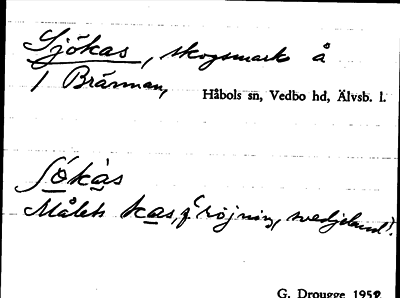 Sjökas, skogsmark å
1 Brännan,
Håbols sn, Vedbo hd, Älvsb. l.
Målets kas, f. 'röjning, svedjeland'.
G. Drougge 1952